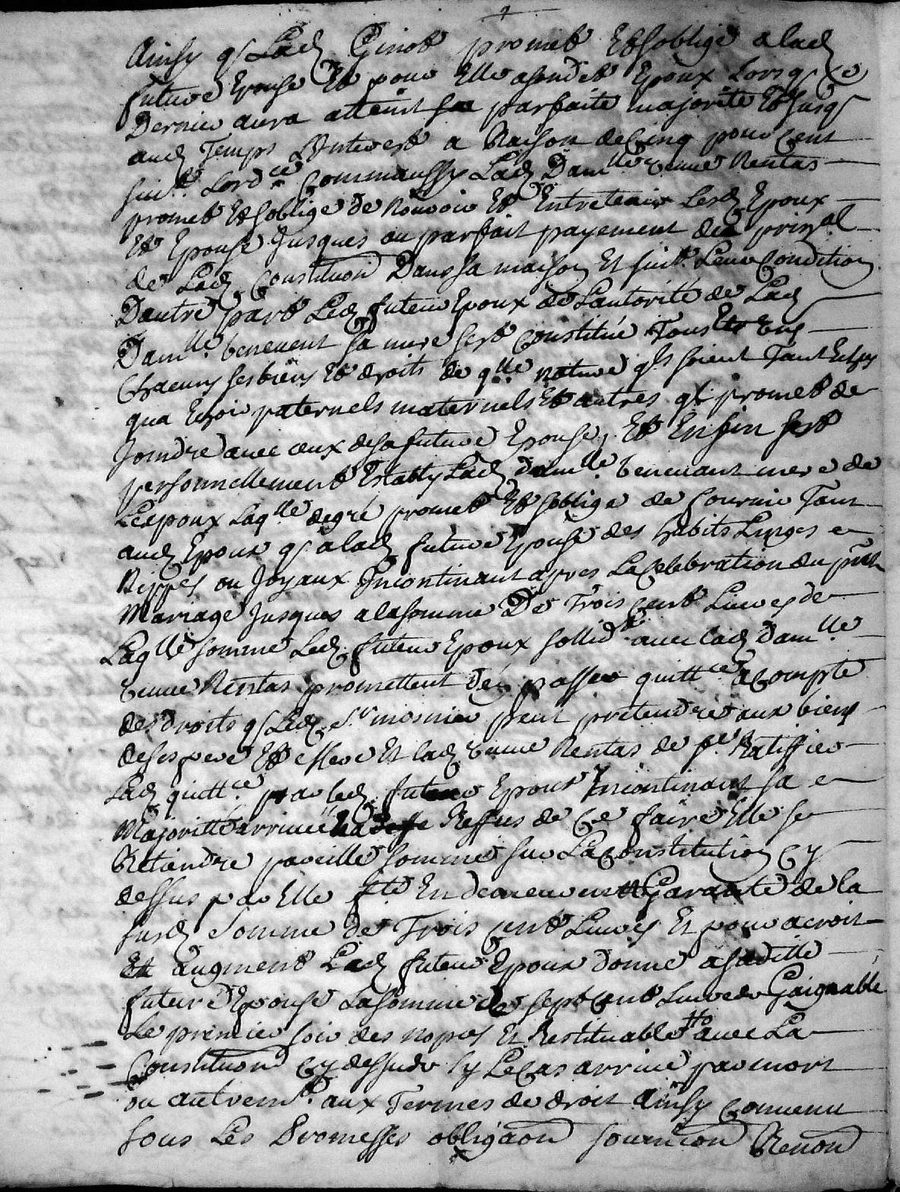 Ainsy q Lad Ginot promet Et soblige a lad
future Epouse Et pour Elle asondit Epoux Lorsq Ce
Dernier aura atteint sa parfaite majorité Et Jusq
aud Temps Interest a Raison de Cinq pour Cent
suivt Lordce Commaussy Lad Damlle veuve Rentas
promet Et soblige de Et Entretenir Lesd Epoux
Et Epouse Jusques au parfait payement du prinal
de Lad Constituon Dans sa maison Et suivt Leur Condition
Dautre part Led futeur Epoux de Lautorité de Lad
Damlle benevent sa mere sest Constitué Tous Et Uns
Chacuns ses biens Et droits de qlle nature qls soient Tant
qua Echoir paternels maternels Et autres ql promet de
Joindre avec ceux de sa future Epouse, Et Enfin sest
personnellement Establ Lad Damlle benevant mere de
Lepoux Laqlle de gré promet Et soblige de fournir Tant
aud Epoux q a lad future Epouse des habits Linges e
Nippes ou Joyaux Incontinant apres La Celebration du pnt
Mariage Jusques a la somme De Trois Cent Livres de
Laqlle somme Led futeur Epoux sollidt avec lad damlle
veuve Rentas promettent den passer quittce a Compte
des droits q Led Sr mosnier peut pretendre aux biens
de ses pere Et mere Et lad veuve Rentas de fe Ratiffier
Lad quittce p led futeur Epoux Incontinant sa e
Majoritté arrivée Reffus de Ce faire Elle se
Retiendre pareille somme sur La Constitution Cy
dessus par Elle fte En demeurent Garante de la
susd somme de Trois Cent Livres Et pour acroit
Et augment Led futeur Epoux donne a saditte
future Epouse La somme de sept Cent Livres Gaignable
Le premier soir des nopces Et Restituable avec La
Constituon Cy dessus sy Le Cas arrive par mort
ou autremt aux Termes de droit Ainsy Convenu
sous Les Promesses obligaon soumion Renon